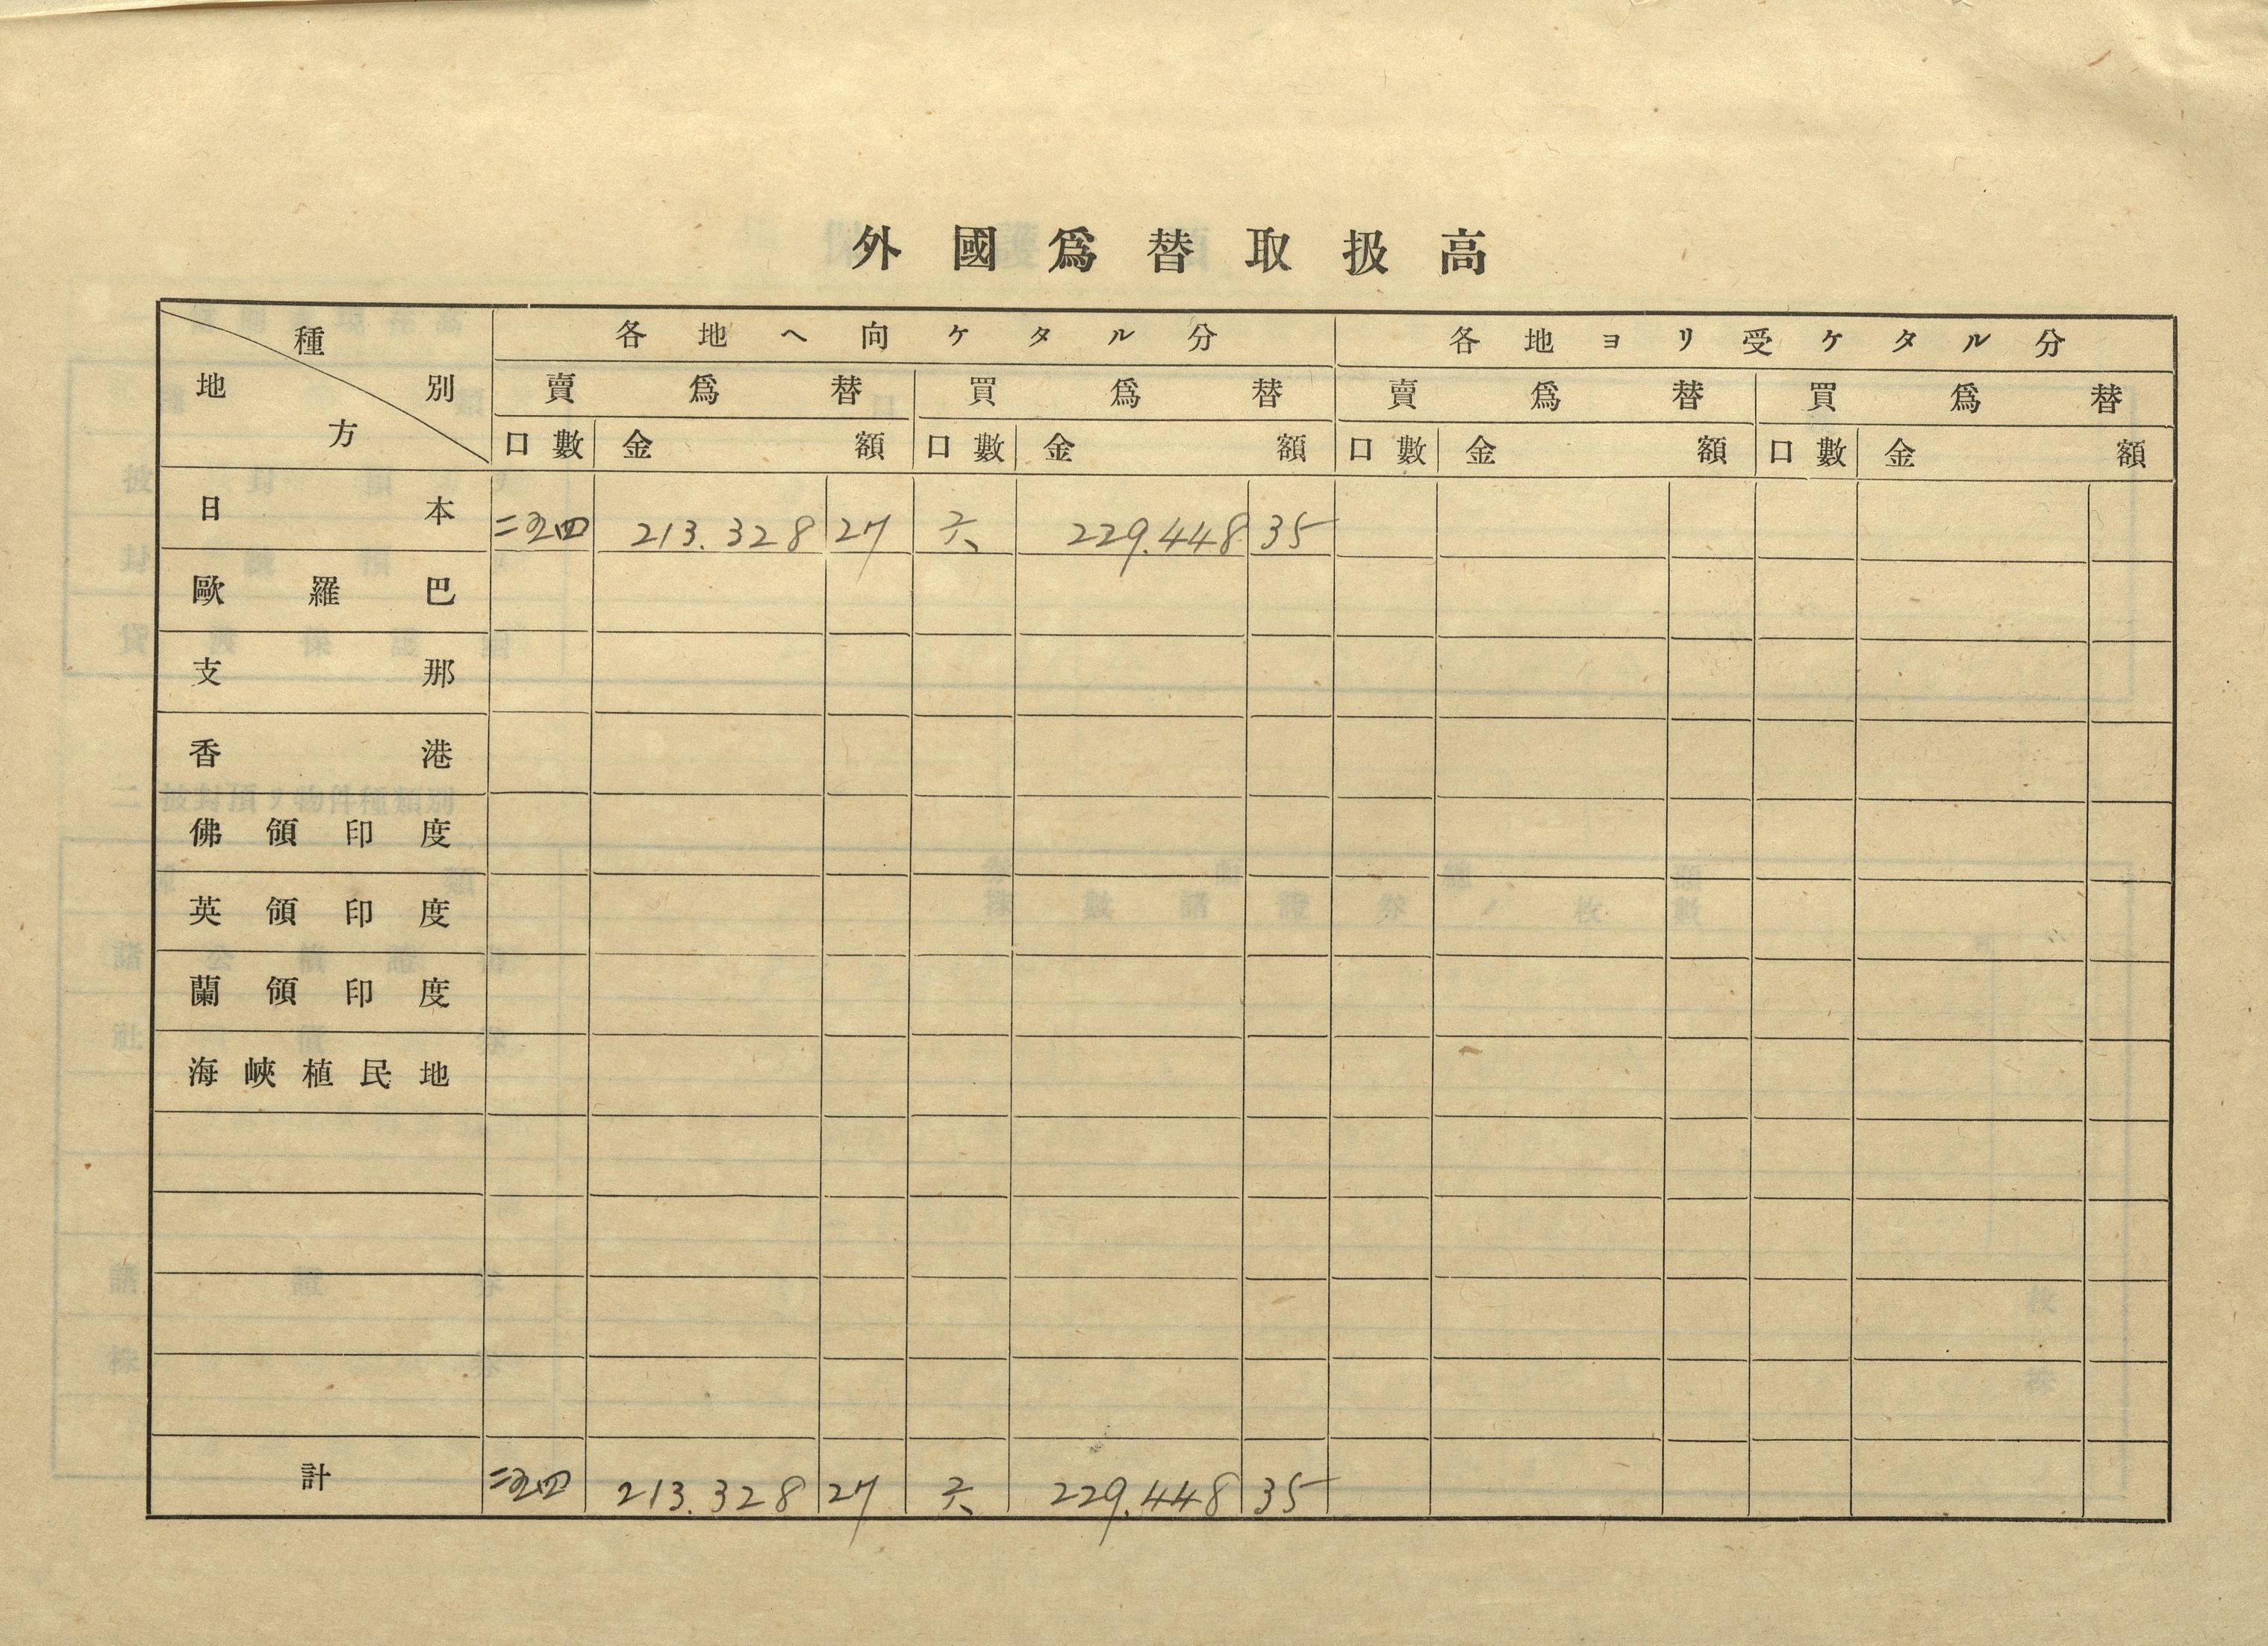 外國爲替取扱高
種別 地方 各地ヘ向ケタル分 各地ヨリ受ケタル分
賣爲替 買爲替 賣爲替 買爲替
口數 金額 口數 金額 口數 金額 口數 金額
日本 213.328 27 六 229.448 35
歐羅巴
支那
香港
佛領印度
英領印度
蘭領印度
海峽植民地
計 213.328 27 六 229.448 35